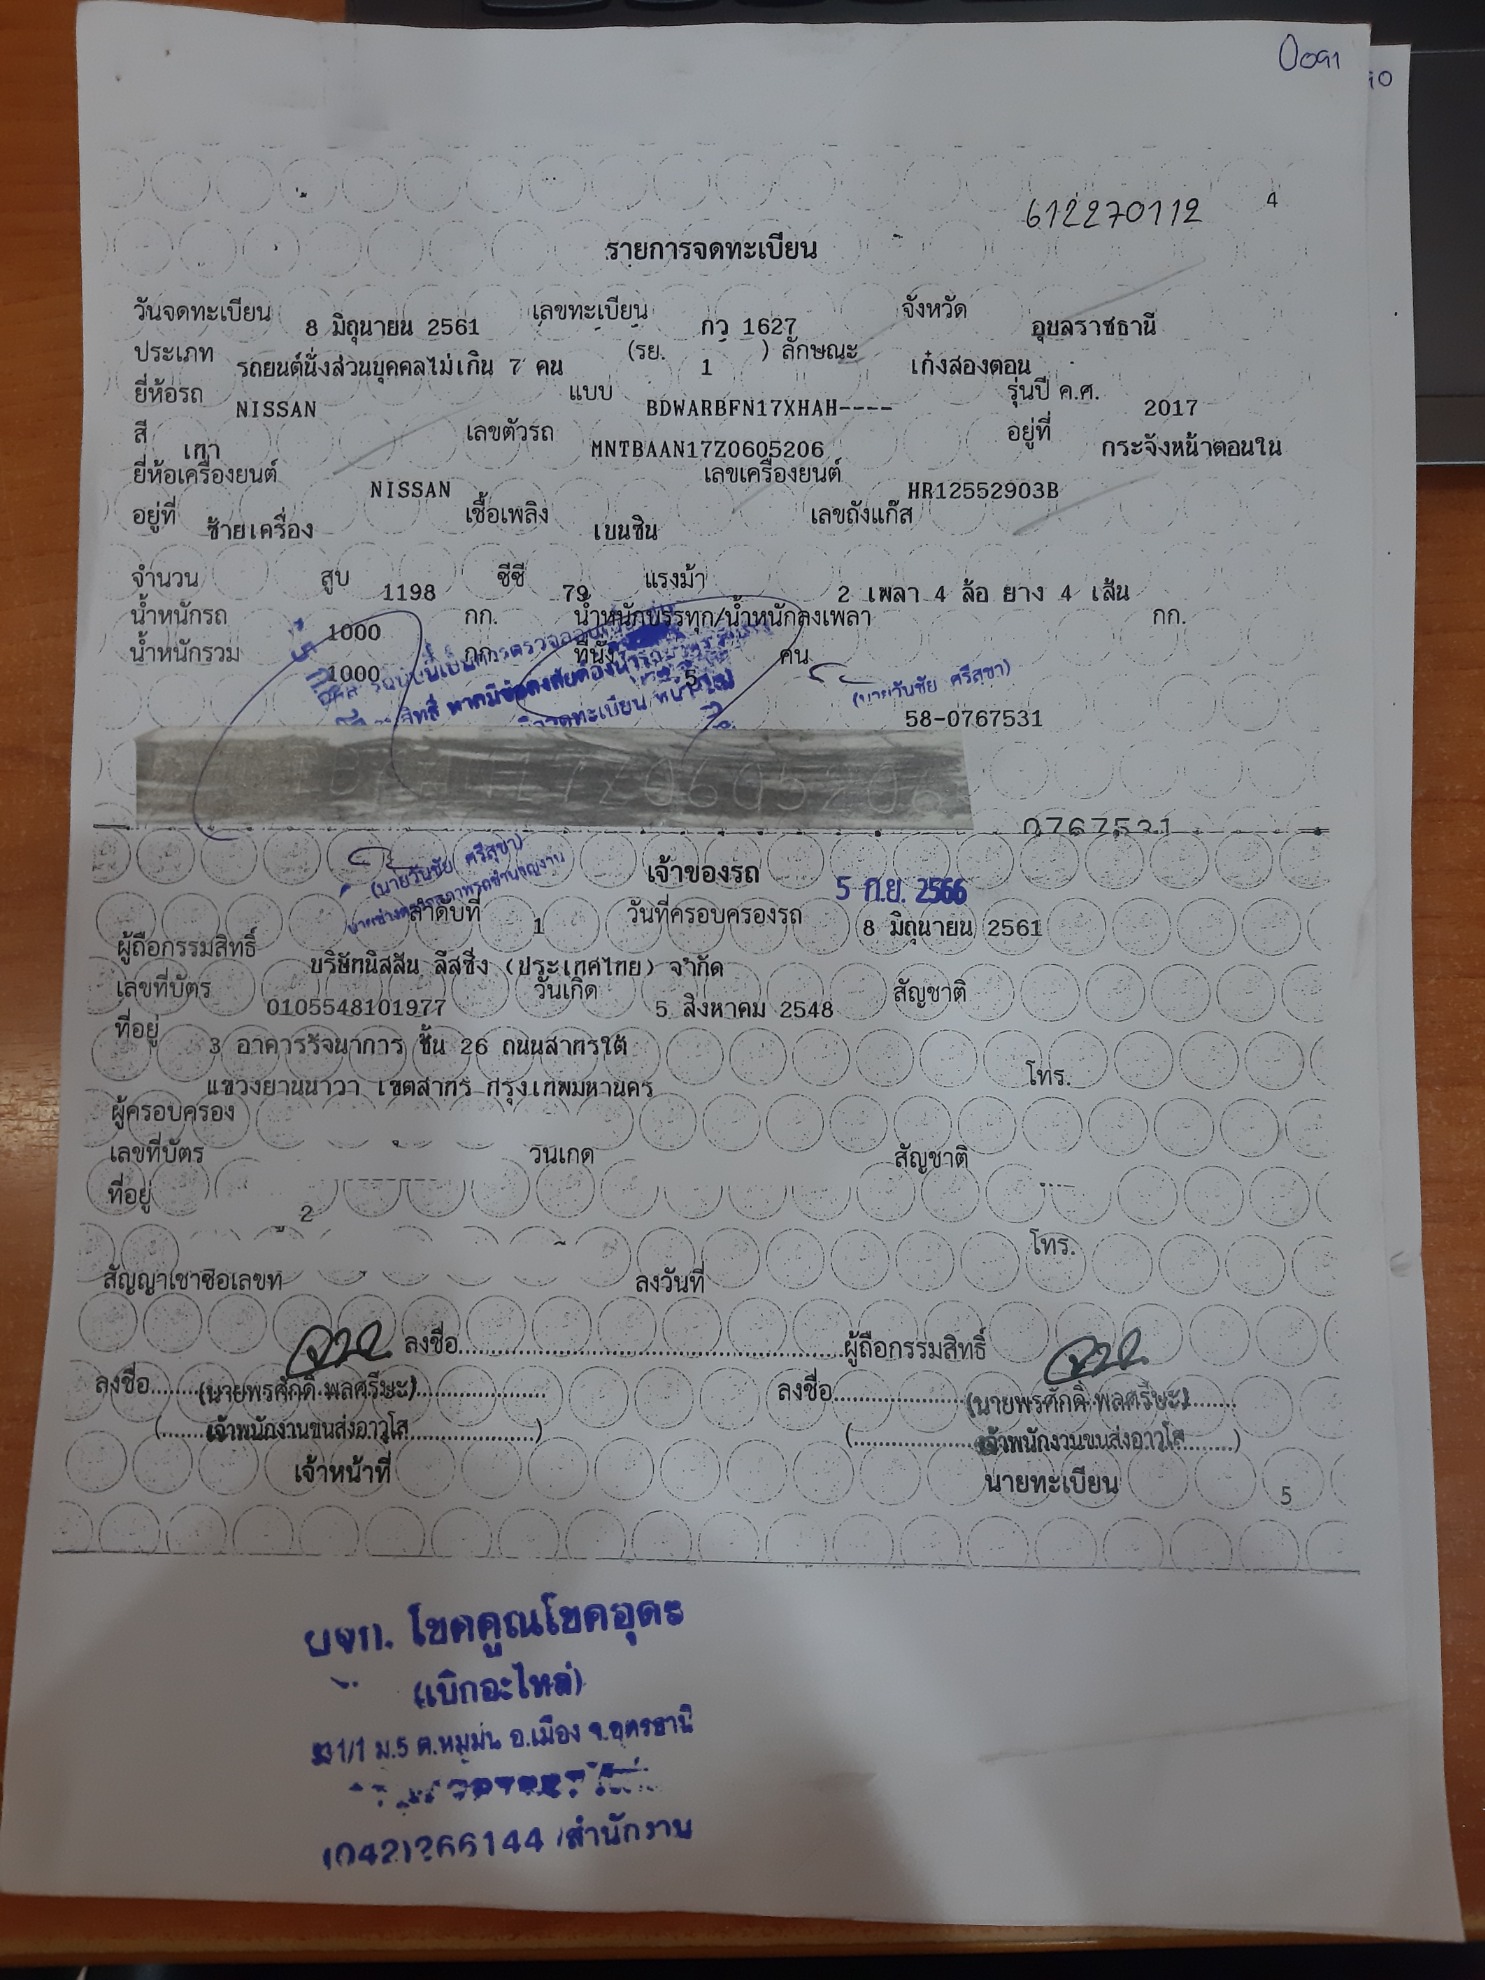 0091
10
612270112 4
รายการจดทะเบียน
วันจดทะเบียน 8 มิถุนายน 2561 เลขทะเบียน กว 1627 จังหวัด อุบลราชธานี
ประเภท รถยนต์นั่งส่วนบุคคลไม่เกิน 7 คน (รย. 1 ) ลักษณะ เก๋งสองตอน
ยี่ห้อรถ NISSAN แบบ BDWARBFN17XHAH---- รุ่นปี ค.ศ. 2017
สี เทา เลขตัวรถ MNTBAAN17Z0605206 อยู่ที่ กระจังหน้าตอนใน
ยี่ห้อเครื่องยนต์ NISSAN เลขเครื่องยนต์ HR12552903B
อยู่ที่ ซ้ายเครื่อง เชื้อเพลิง เบนซิน เลขถังแก๊ส
จำนวน สูบ 1198 ซีซี 79 แรงม้า 2 เพลา 4 ล้อ ยาง 4 เส้น
น้ำหนักรถ 1000 กก. น้ำหนักบรรทุก/น้ำหนักลงเพลา กก.
น้ำหนักรวม 1000 กก. ที่นั่ง 5 คน
(นายวันชัย ศรีสุขา)
58-0767531
0767531
(นายวันชัย ศรีสุขา)
เจ้าของรถ 5 ก.ย. 2566
ลำดับที่ 1 วันที่ครอบครองรถ 8 มิถุนายน 2561
ผู้ถือกรรมสิทธิ์ บริษัทนิสสัน ลีสซิ่ง (ประเทศไทย) จำกัด
เลขที่บัตร 0105548101977 วันเกิด 5 สิงหาคม 2548 สัญชาติ
ที่อยู่ 3 อาคารรัจนาการ ชั้น 26 ถนนสาทรใต้
แขวงยานนาวา เขตสาทร กรุงเทพมหานคร โทร.
ผู้ครอบครอง
เลขที่บัตร วันเกิด สัญชาติ
ที่อยู่ 2
โทร.
สัญญาเช่าซื้อเลขที่ ลงวันที่
ลงชื่อ ผู้ถือกรรมสิทธิ์
ลงชื่อ (นายพรศักดิ์ พลศรีษะ) ลงชื่อ (นายพรศักดิ์ พลศรีษะ)
(เจ้าพนักงานขนส่งอาวุโส) (เจ้าพนักงานขนส่งอาวุโส)
เจ้าหน้าที่ นายทะเบียน 5
หจก. โชคคูณโชคอุดร
(เบิกอะไหล่)
1/1 ม.5 ต.หมูม่น อ.เมือง จ.อุดรธานี
(042)266144 /สำนักงาน